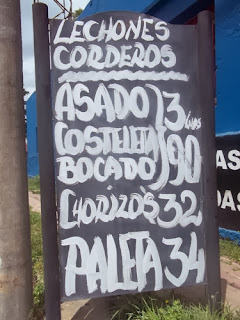 LECHONES
CORDEROS
ASADO 3 Kilos
COSTELETA
BOCADO 90
CHORIZOS 32
PALETA 34